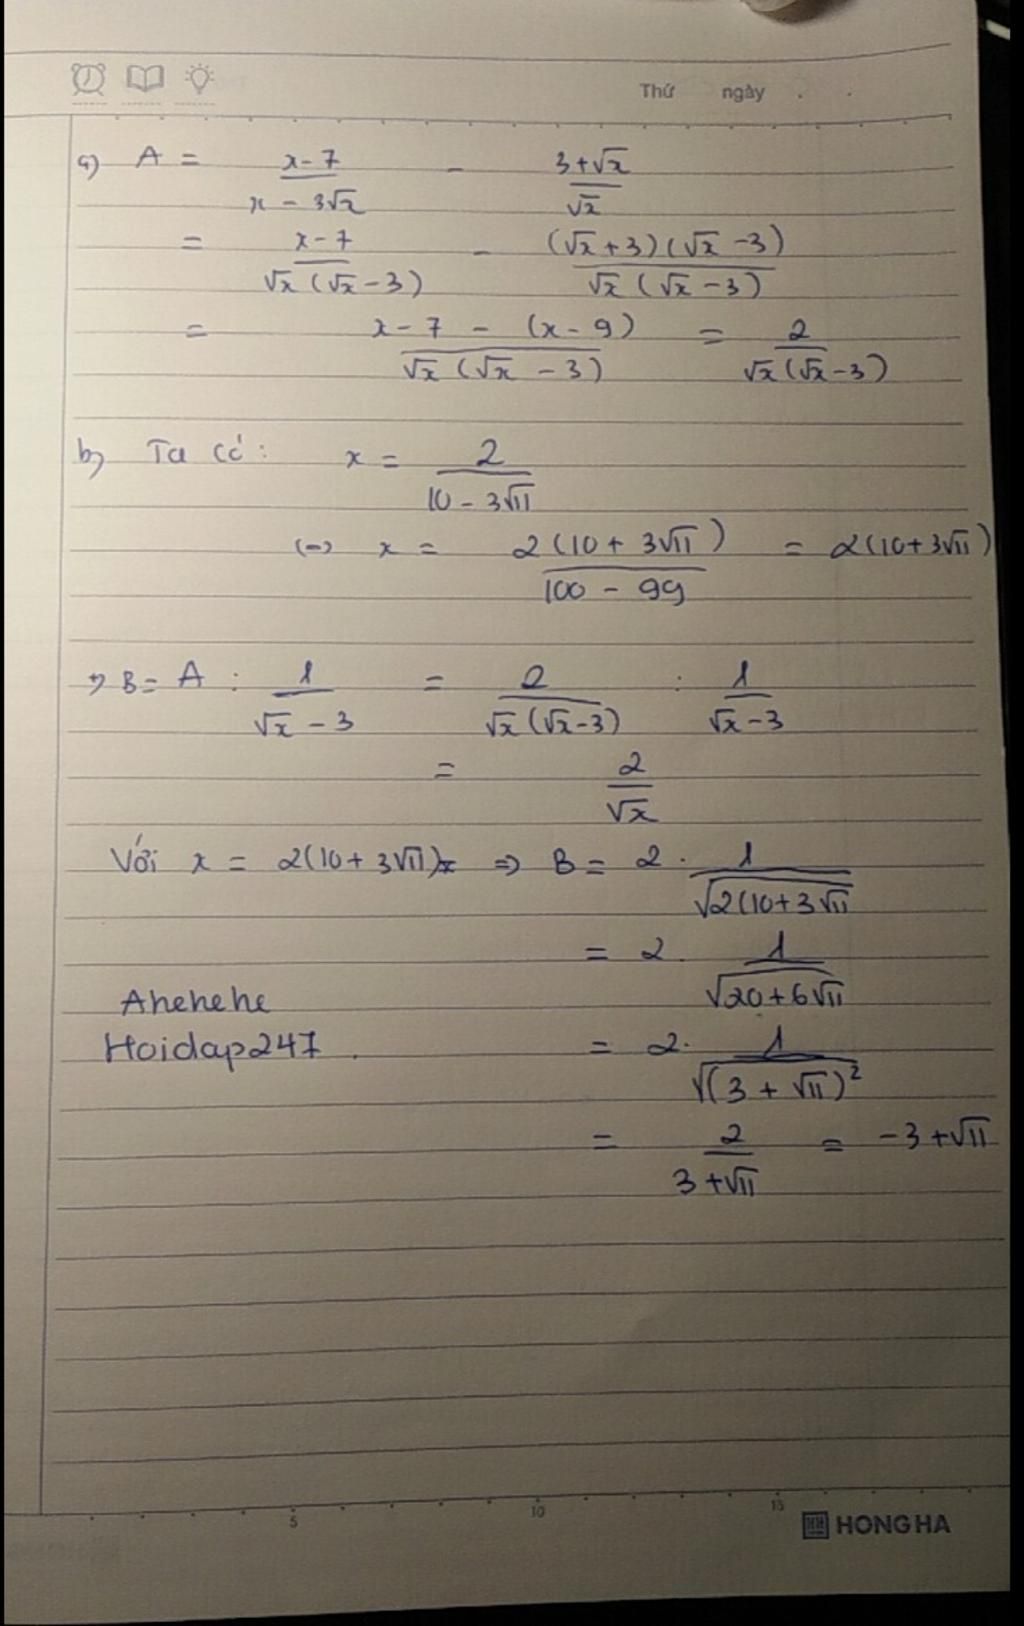 Thứ ngày . .
a) A = \frac{x-7}{x-3\sqrt{x}} - \frac{3+\sqrt{x}}{\sqrt{x}}
= \frac{x-7}{\sqrt{x}(\sqrt{x}-3)} - \frac{(\sqrt{x}+3)(\sqrt{x}-3)}{\sqrt{x}(\sqrt{x}-3)}
= \frac{x-7-(x-9)}{\sqrt{x}(\sqrt{x}-3)} = \frac{2}{\sqrt{x}(\sqrt{x}-3)}
b) Ta có: x = \frac{2}{10-3\sqrt{11}}
(=) x = \frac{2(10+3\sqrt{11})}{100-99} = 2(10+3\sqrt{11})
=) B = A : \frac{1}{\sqrt{x}-3} = \frac{2}{\sqrt{x}(\sqrt{x}-3)} : \frac{1}{\sqrt{x}-3}
= \frac{2}{\sqrt{x}}
Với x = 2(10+3\sqrt{11}) => B = 2 . \frac{1}{\sqrt{2(10+3\sqrt{11}}}
= 2. \frac{1}{\sqrt{20+6\sqrt{11}}}
Ahehehe
Hoidap247 . = 2. \frac{1}{\sqrt{(3+\sqrt{11})^2}}
= \frac{2}{3+\sqrt{11}} = -3+\sqrt{11}
5 10 15
HH HONG HA